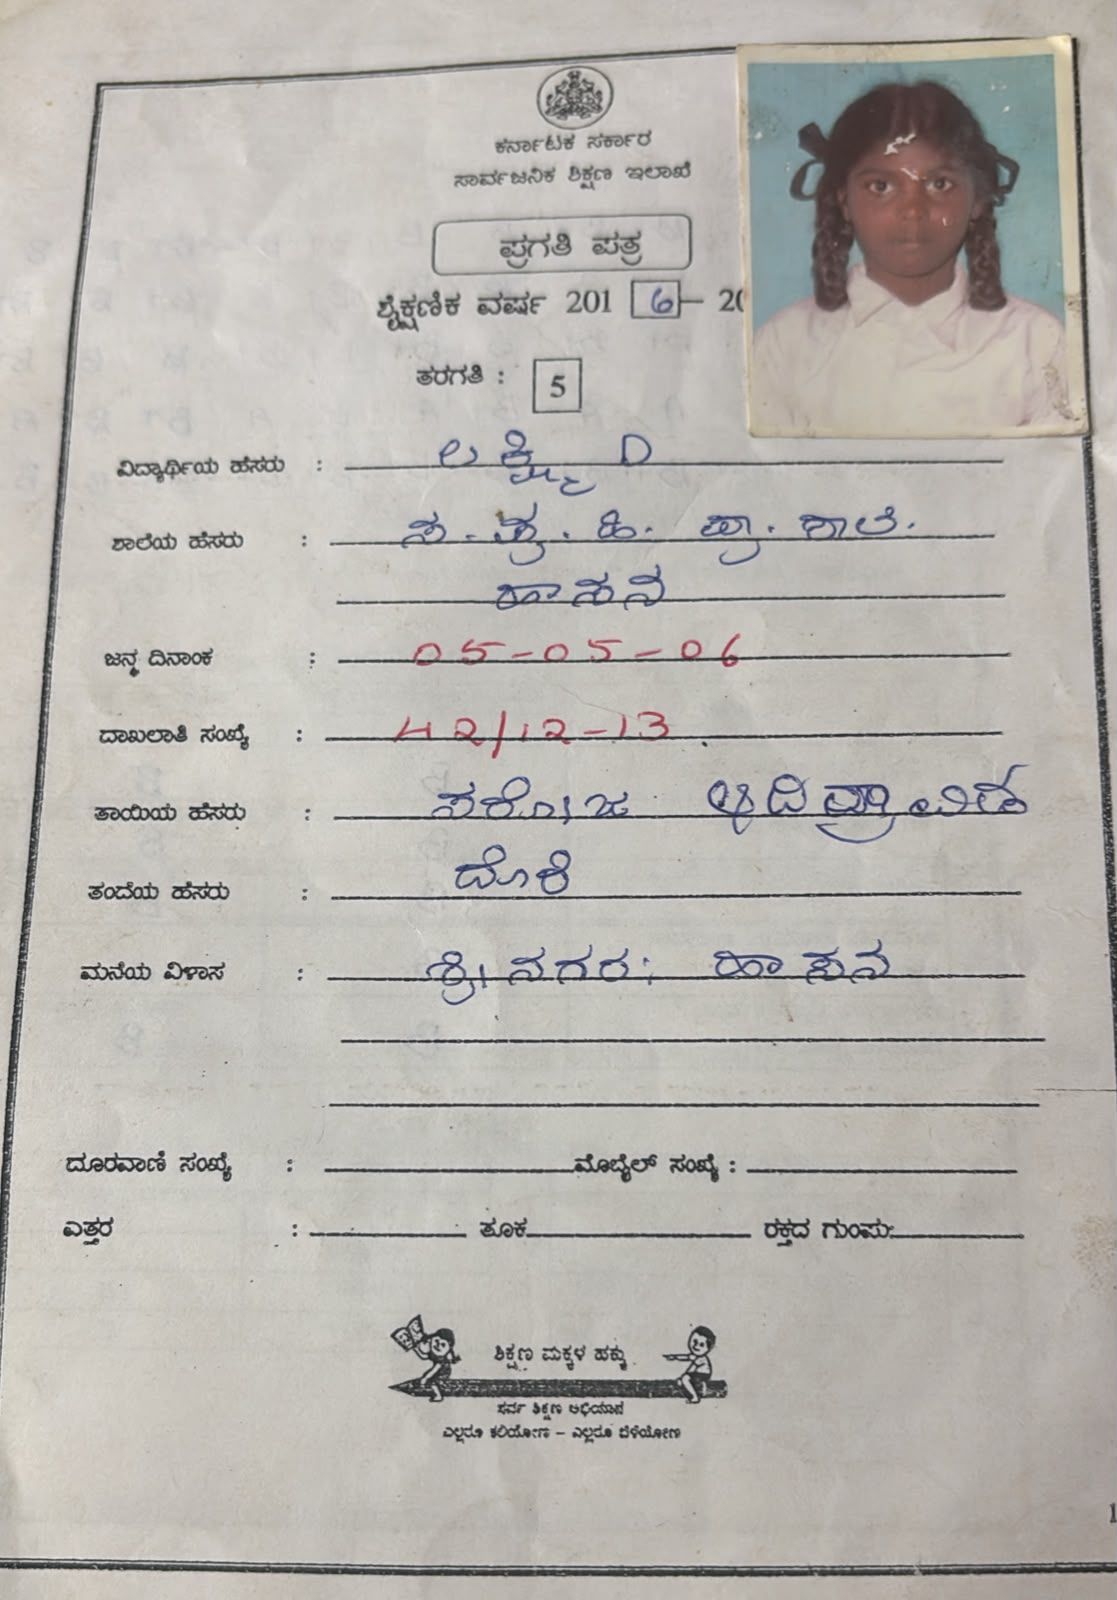 ಕರ್ನಾಟಕ ಸರ್ಕಾರ
ಸಾರ್ವಜನಿಕ ಶಿಕ್ಷಣ ಇಲಾಖೆ
ಪ್ರಗತಿ ಪತ್ರ
ಶೈಕ್ಷಣಿಕ ವರ್ಷ 201 6 - 20
ತರಗತಿ : 5
ವಿದ್ಯಾರ್ಥಿಯ ಹೆಸರು : ಲಕ್ಷ್ಮಿ D
ಶಾಲೆಯ ಹೆಸರು : ಸ. ಪ್ರ. ಹಿ. ಪ್ರಾ. ಶಾಲೆ.
ಹಾಸನ
ಜನ್ಮ ದಿನಾಂಕ : 05-05-06
ದಾಖಲಾತಿ ಸಂಖ್ಯೆ : 42/12-13
ತಾಯಿಯ ಹೆಸರು : ಸರೋಜ ಆದಿದ್ರಾವಿಡ
ತಂದೆಯ ಹೆಸರು : ದೊರೆ
ಮನೆಯ ವಿಳಾಸ : ಶ್ರೀನಗರ: ಹಾಸನ
ದೂರವಾಣಿ ಸಂಖ್ಯೆ : ಮೊಬೈಲ್ ಸಂಖ್ಯೆ :
ಎತ್ತರ : ತೂಕ ರಕ್ತದ ಗುಂಪು:
ಶಿಕ್ಷಣ ಮಕ್ಕಳ ಹಕ್ಕು
ಸರ್ವ ಶಿಕ್ಷಣ ಅಭಿಯಾನ
ಎಲ್ಲರೂ ಕಲಿಯೋಣ - ಎಲ್ಲರೂ ಬೆಳೆಯೋಣ
1